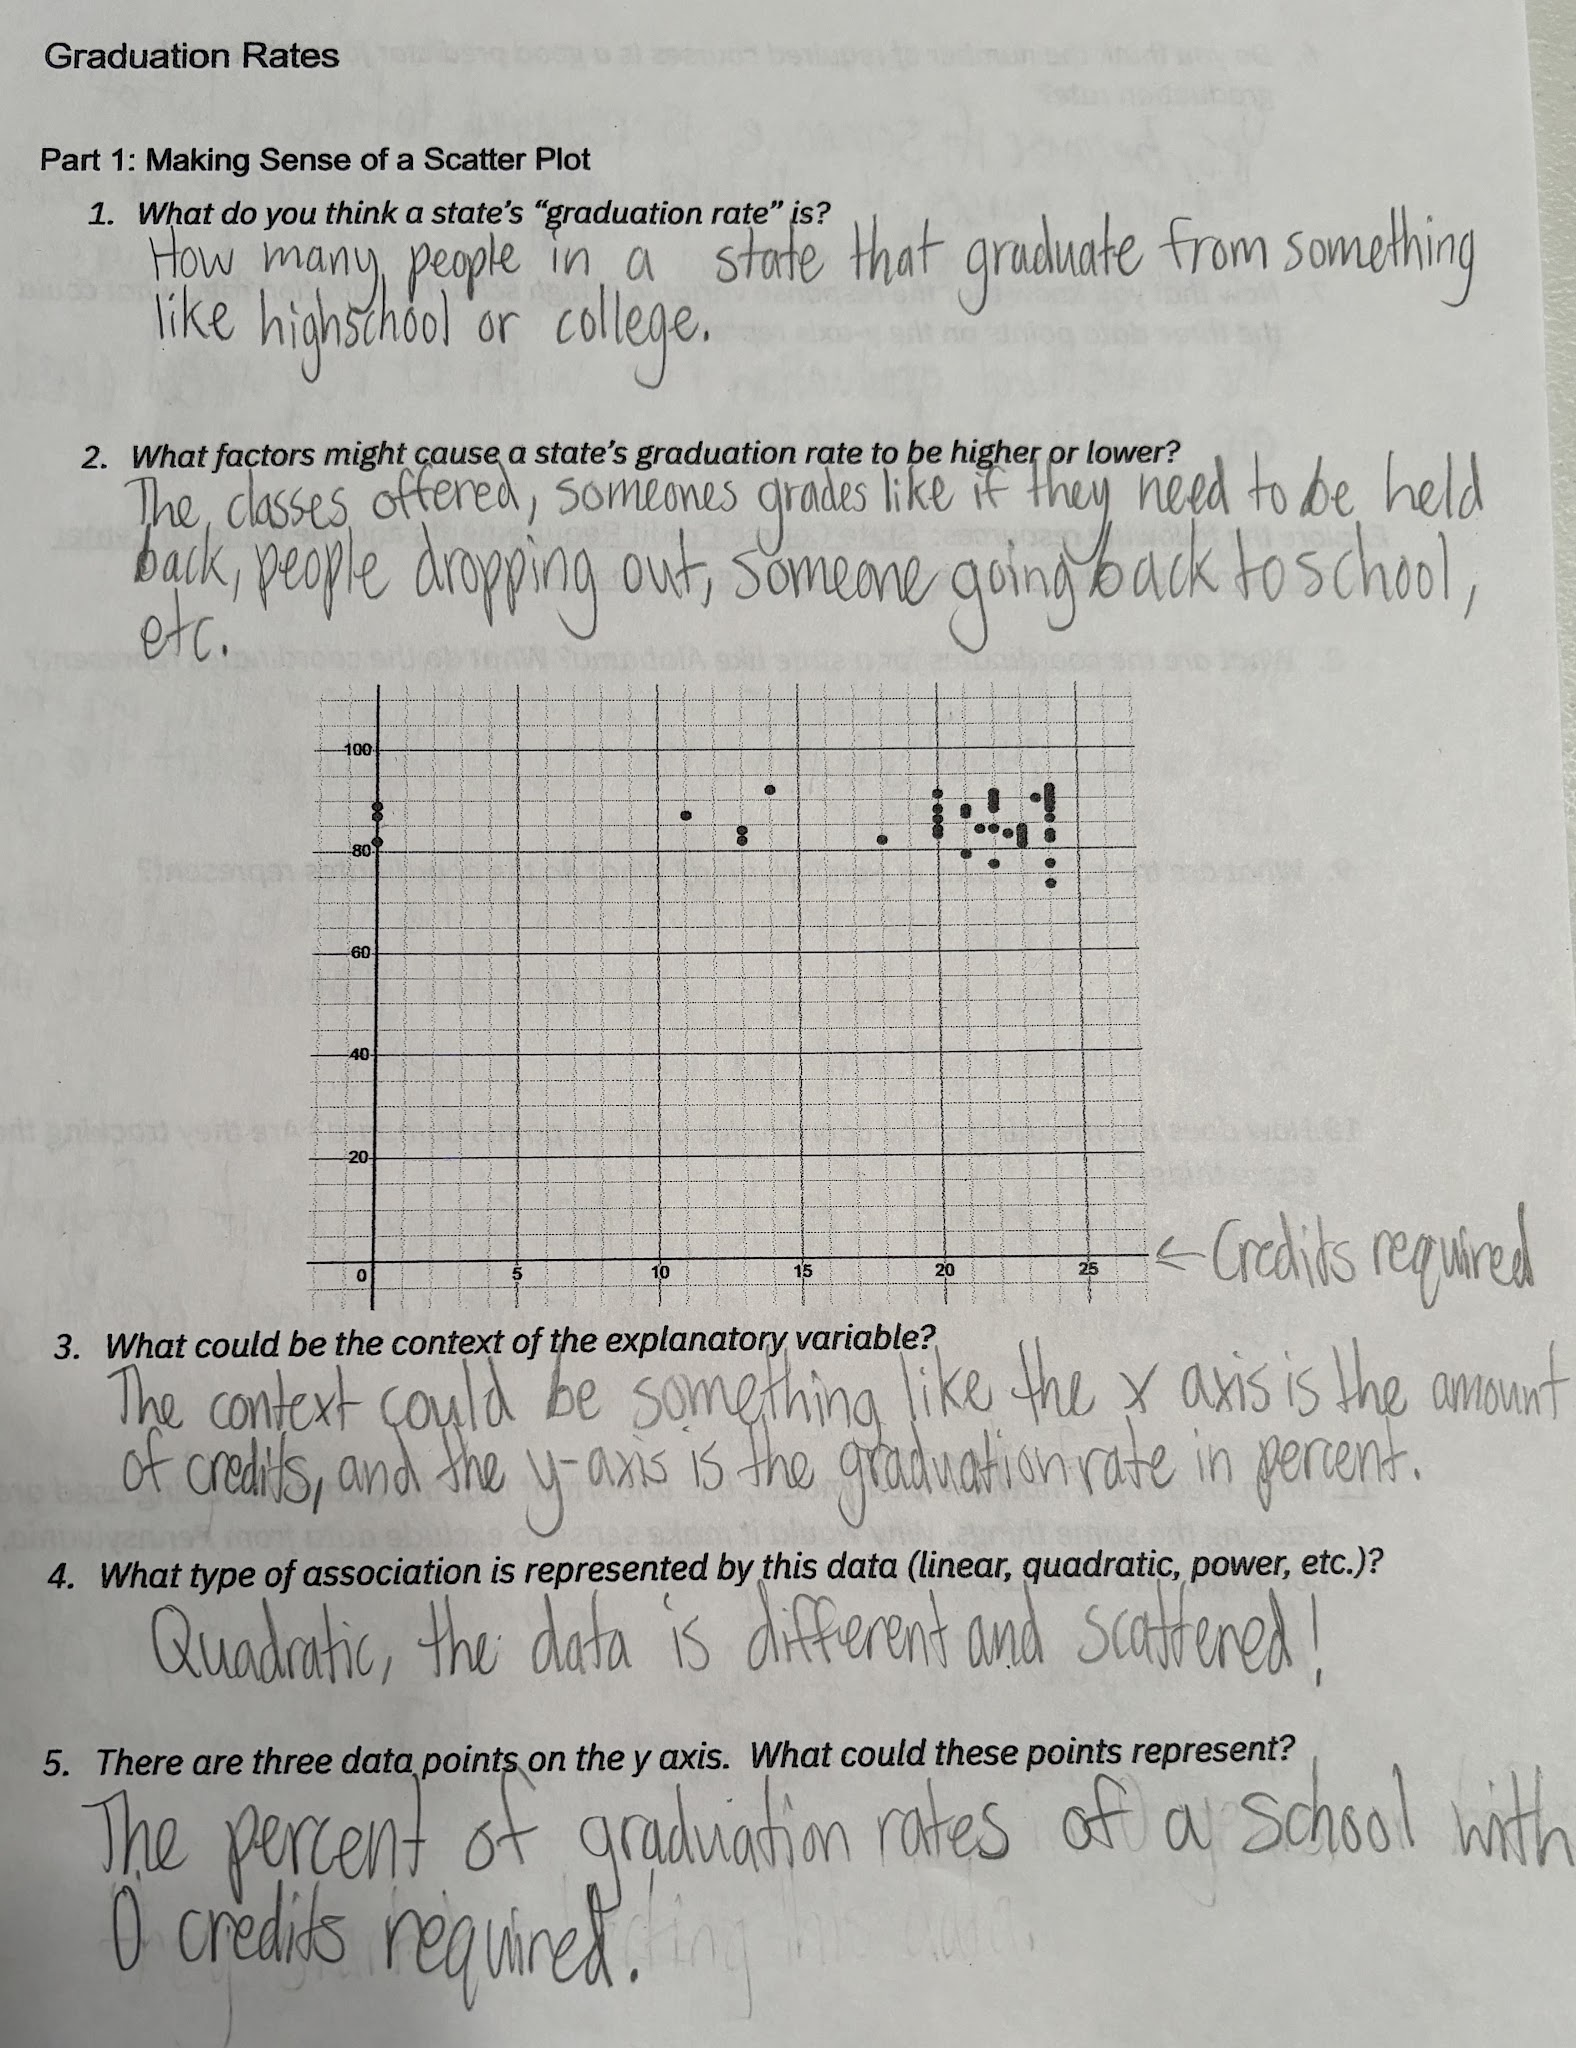 Graduation Rates
Part 1: Making Sense of a Scatter Plot
1. What do you think a state's "graduation rate" is?
How many people in a state that graduate from something
like highschool or college.
2. What factors might cause a state's graduation rate to be higher or lower?
The classes offered, someones grades like if they need to be held
back, people dropping out, someone going back to school,
etc.
100
80
60
40
20
0 5 10 15 20 25 ← Credits required
3. What could be the context of the explanatory variable?
The context could be something like the x axis is the amount
of credits, and the y-axis is the graduation rate in percent.
4. What type of association is represented by this data (linear, quadratic, power, etc.)?
Quadratic, the data is different and scattered!
5. There are three data points on the y axis. What could these points represent?
The percent of graduation rates of a school with
0 credits required.